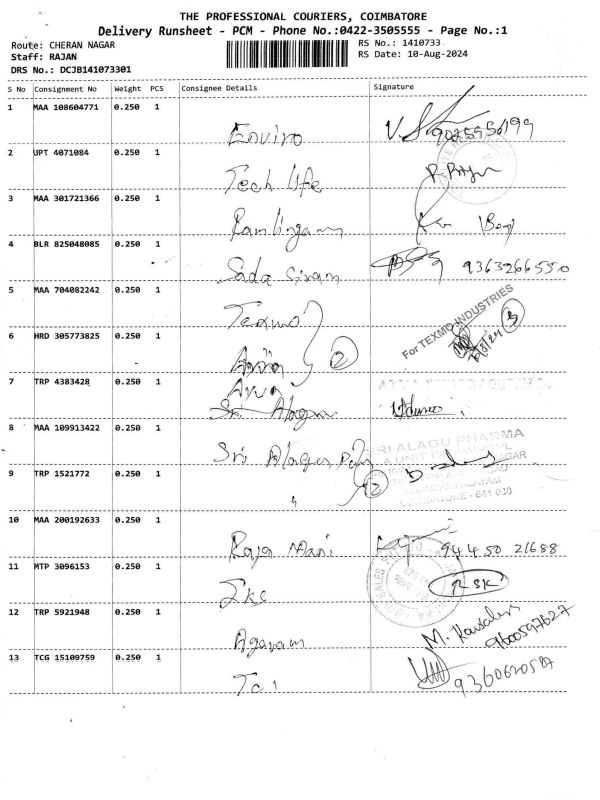 THE PROFESSIONAL COURIERS, COIMBATORE
Delivery Runsheet - PCM - Phone No.:0422-3505555 - Page No.:1
Route: CHERAN NAGAR
RS No.: 1410733
Staff: RAJAN
RS Date: 10-Aug-2024
DRS No.: DCJB141073301
S No Consignment No Weight PCS Consignee Details Signature
1 MAA 108604771 0.250 1
Enviro 9025956199
2 UPT 4071084 0.250 1
Tech life
3 MAA 301721366 0.250 1
Ramlingam
4 BLR 825048085 0.250 1
Sada Sivam 9363266550
5 MAA 704082242 0.250 1
Texmo
For TEXMO INDUSTRIES
3
6 HRD 305773825 0.250 1
2
7 TRP 4383428 0.250 1
Sri Alagu
8 MAA 109913422 0.250 1
Sri Alagu
SRI ALAGU PHARMA
9 TRP 1521772 0.250 1
COIMBATORE - 641 030
10 MAA 200192633 0.250 1
Raja Mani 94450 21688
11 MTP 3096153 0.250 1
RSK
12 TRP 5921948 0.250 1
Agaram M. Kausalya
9600597627
13 TCG 15109759 0.250 1
9360620587